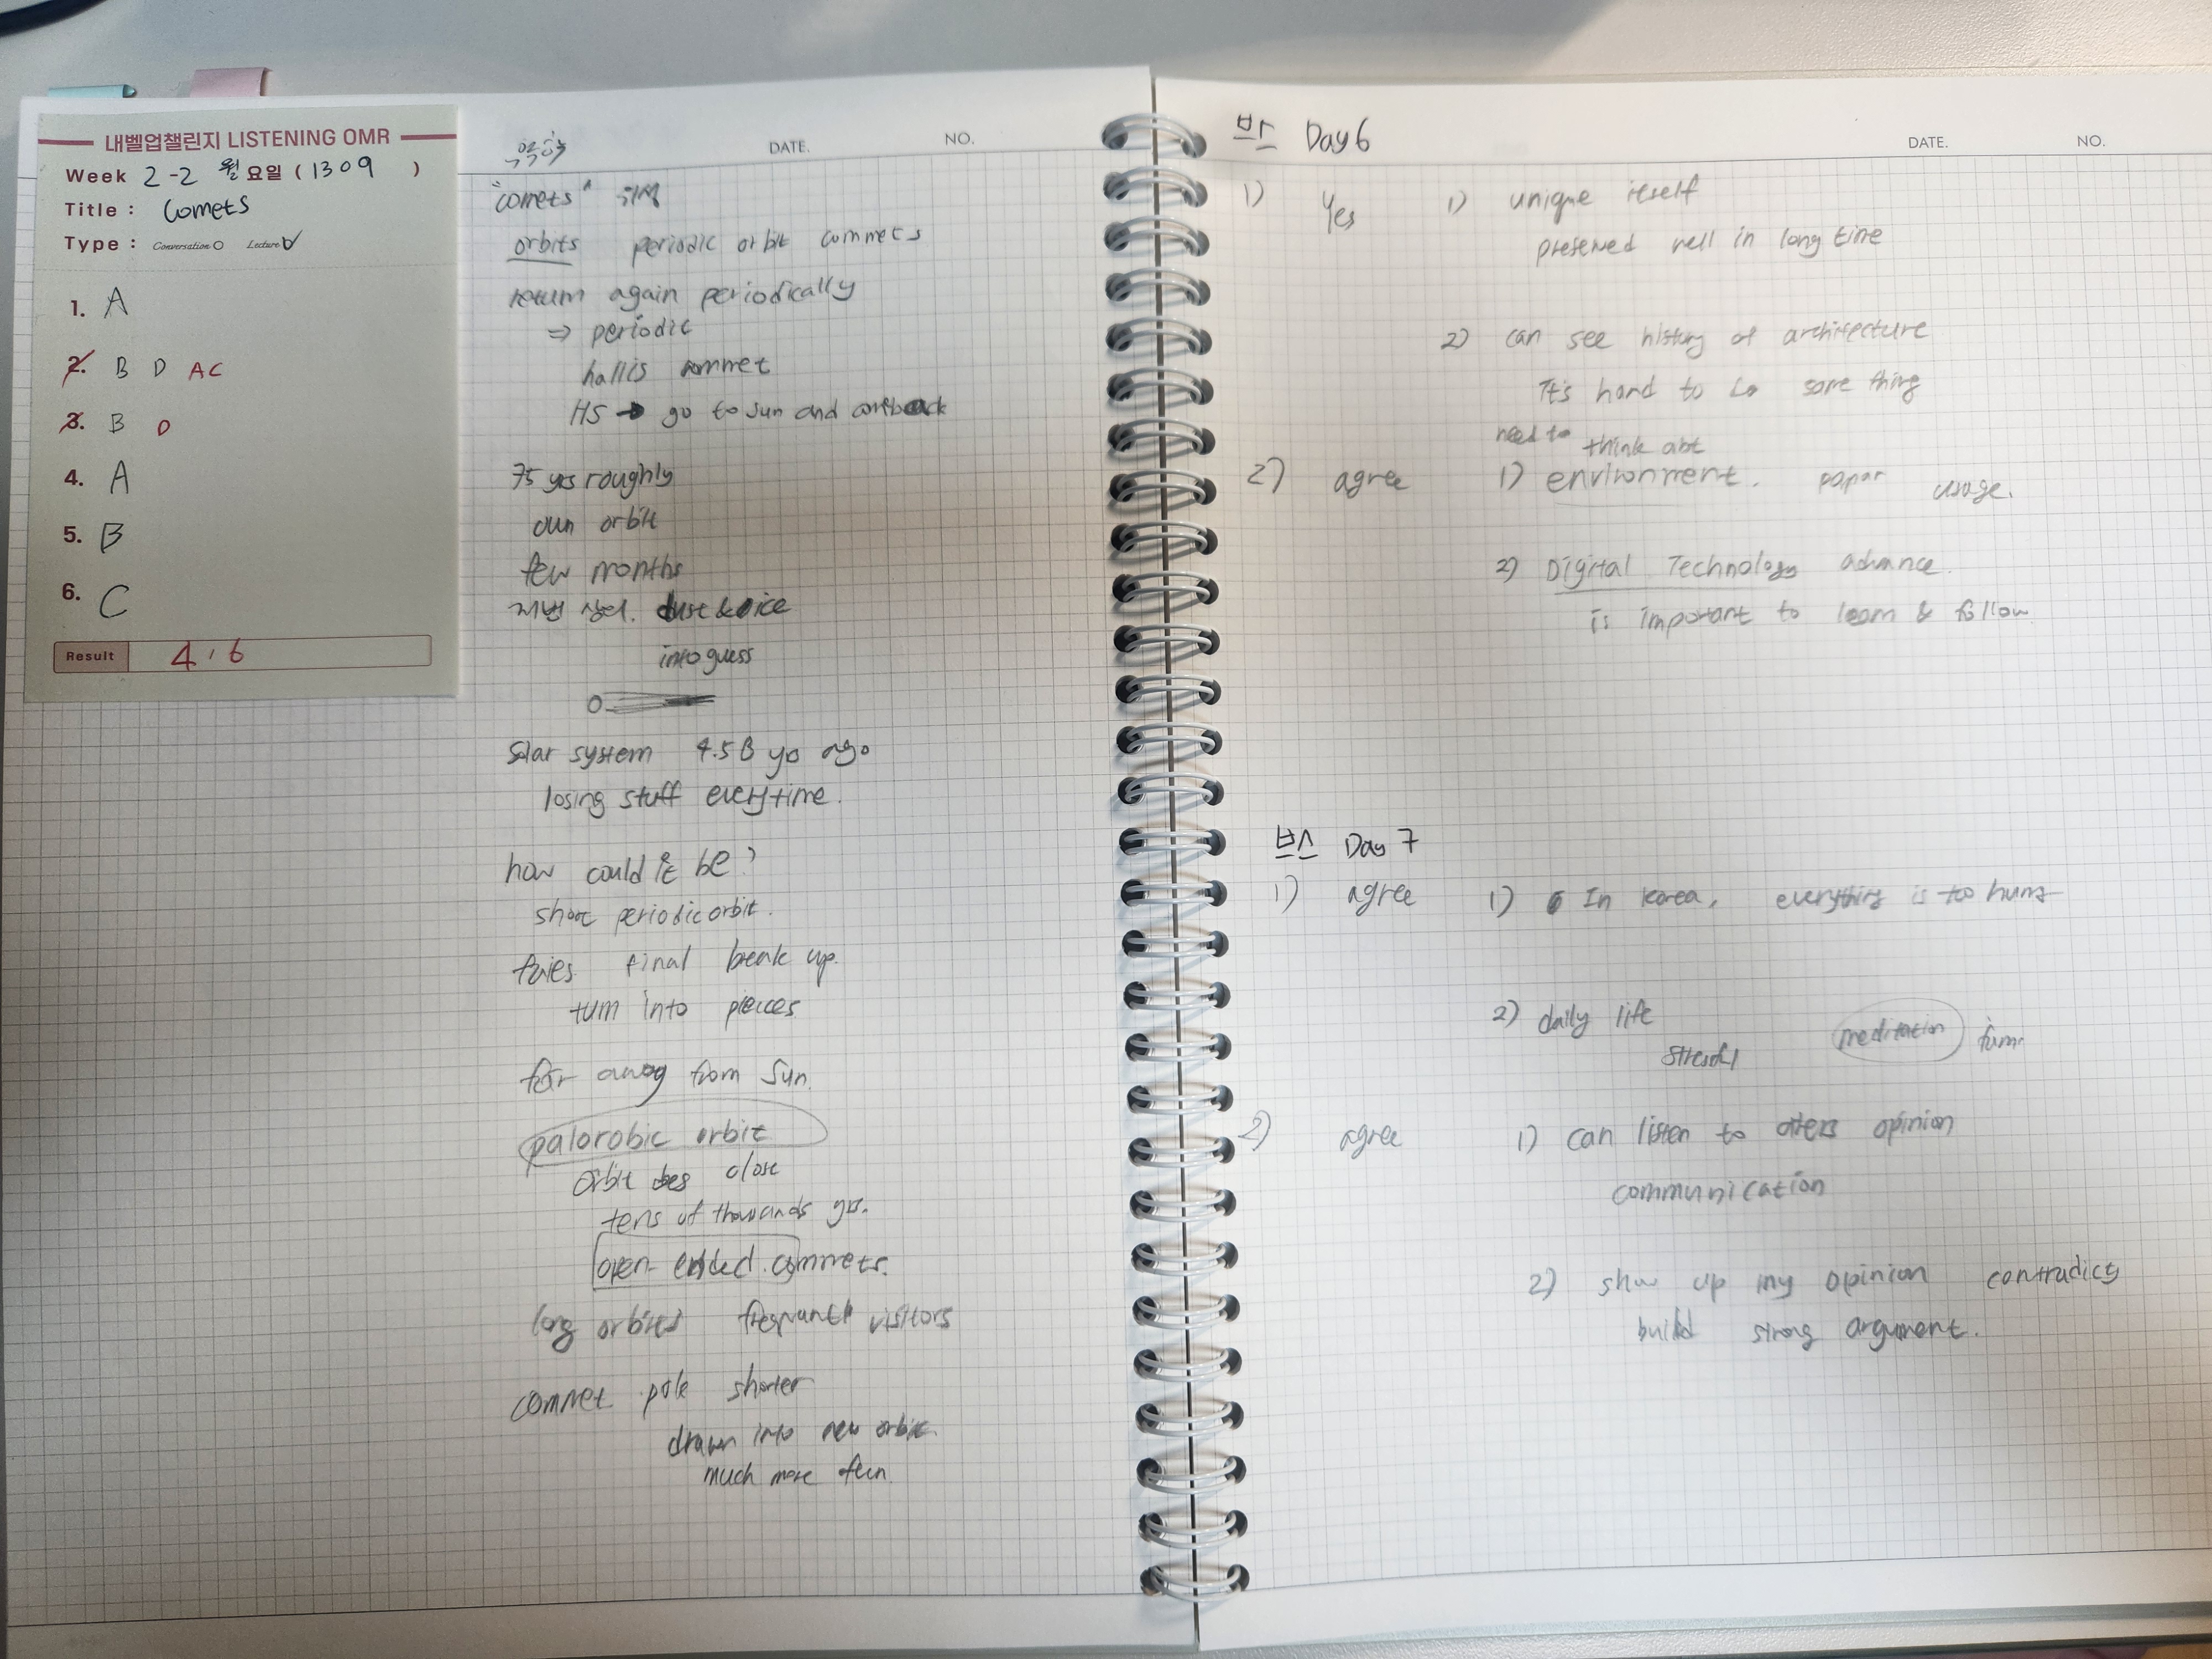 내벨업챌린지 LISTENING OMR
Week 2-2 월요일 (1309)
Title : Comets
Type : Conversation Lecture
1. A
2. B D AC
3. B D
4. A
5. B
6. C
Result 4/6
DATE. NO.
"comets" 혜성
orbits periodic orbit commets
return again periodically
⇒ periodic
hallis commet
HS → go to sun and
75 yrs roughly
own orbit
few months
dust & ice
into guess
Solar system 4.5 B yrs ago
losing stuff everytime.
how could it be?
short periodic orbit.
final break up.
turn into pieces
far away from Sun.
palorobic orbit
orbit close
tens of thousands yrs.
open-ended commets.
long orbits visitors
commet shorter
drawn into new orbit.
much more
DATE. NO.
브스 Day 6
1) Yes 1) unique itself
preserved well in long time
2) can see history of architecture
It's hard to something
need to think abt
2) agree 1) environment. papar usage.
2) Digital Technology advance.
is important to learn & follow
브스 Day 7
1) agree 1) In Korea, everything is too
2) daily life
stressful meditation
2) agree 1) can listen to others opinion
communication
2) show up my opinion contradicts
build strong argument.